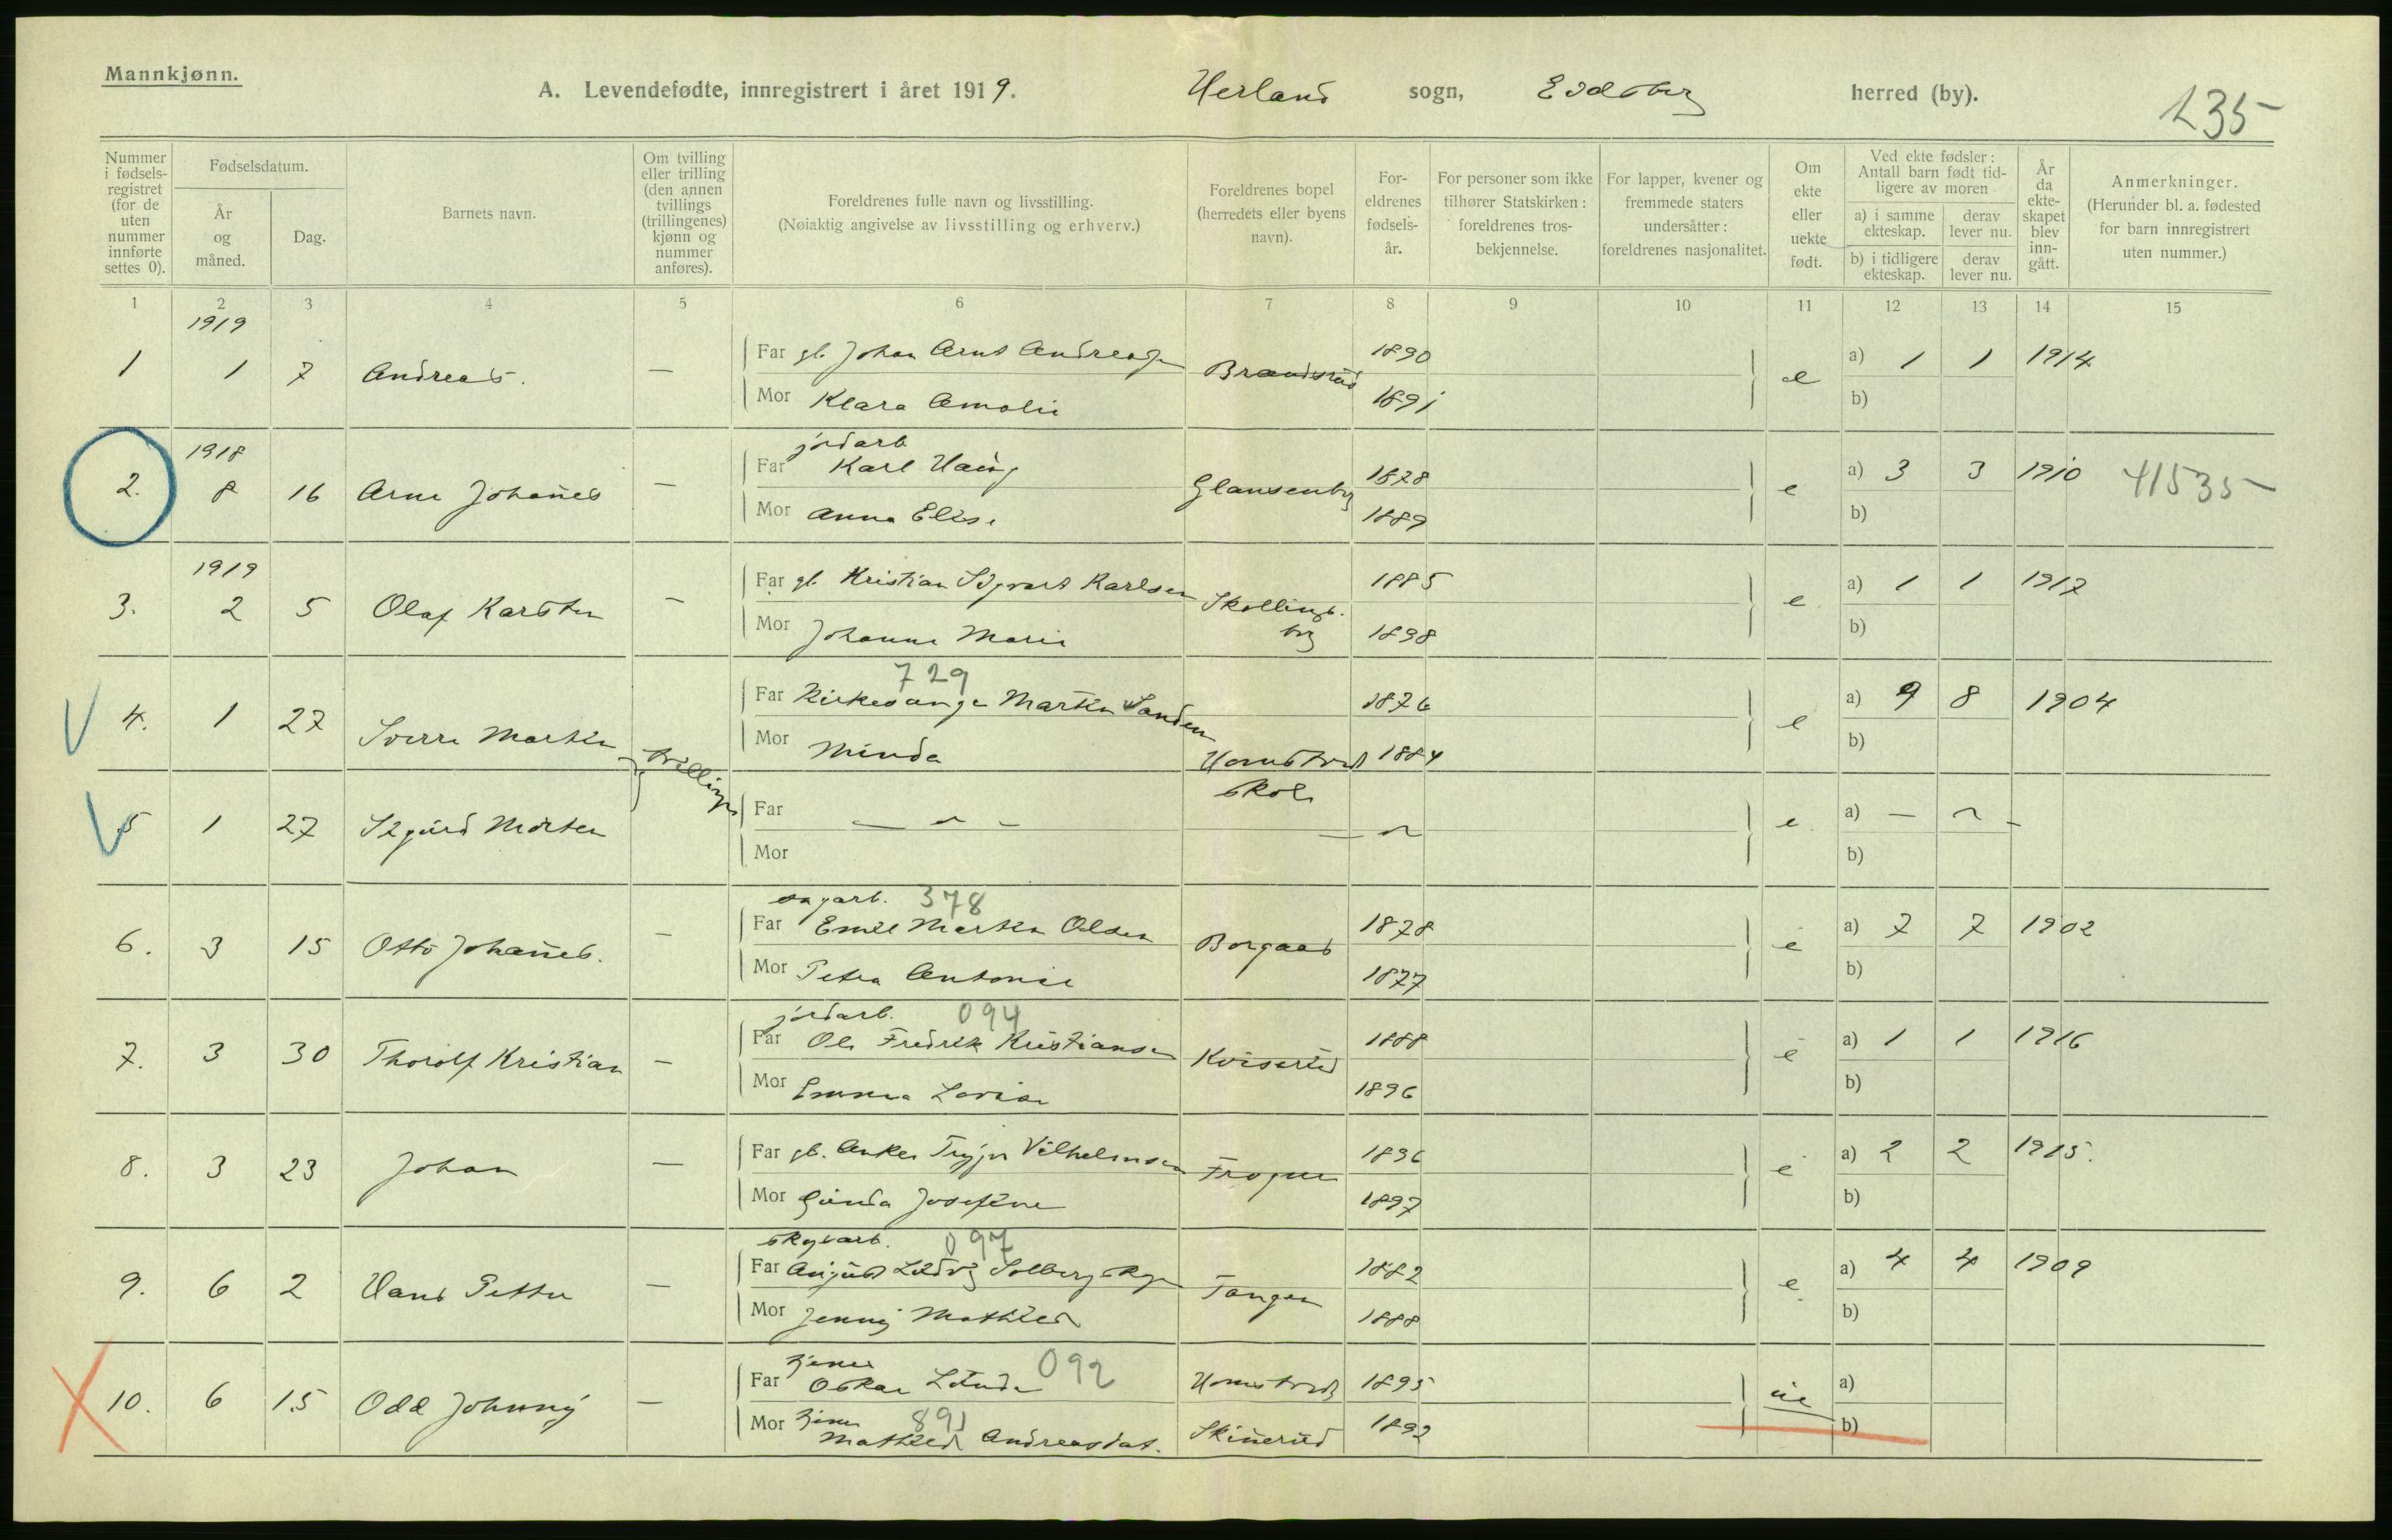 Mannkjønn.
A. Levendefødte, innregistrert i året 1919. Herland sogn, Eidsberg herred (by). 235
Nummer i fødsels-registret (for de uten nummer innførte settes 0).
Fødselsdatum.
År og måned.
Dag.
Barnets navn.
Om tvilling eller trilling (den annen tvillings (trillingenes) kjønn og nummer anføres).
Foreldrenes fulle navn og livsstilling.
(Nøiaktig angivelse av livsstilling og erhverv.)
Foreldrenes bopel (herredets eller byens navn).
For-eldrenes fødsels-år.
For personer som ikke tilhører Statskirken: foreldrenes tros-bekjennelse.
For lapper, kvener og fremmede staters undersåtter: foreldrenes nasjonalitet.
Om ekte eller uekte født.
Ved ekte fødsler: Antall barn født tid-ligere av moren
a) i samme ekteskap. derav lever nu.
b) i tidligere ekteskap. derav lever nu.
År da ekte-skapet blev inn-gått.
Anmerkninger.
(Herunder bl. a. fødested for barn innregistrert uten nummer.)
1 2 3 4 5 6 7 8 9 10 11 12 13 14 15
1919
1 1 7 Andreas. — Far gb. Johan Arnt Andreasen Brandsrud 1890 e a) 1 1 1914
Mor Klara Amalie 1891 b)
1918 jordarb
2. 8 16 Arne Johannes — Far Karl Haug Glausenby 1878 e a) 3 3 1910 41535
Mor Anna Elise 1889 b)
1919
3. 2 5 Olaf Karsten — Far gb. Kristian Sigvart Karlsen Skollings-by 1885 e a) 1 1 1917
Mor Johanne Marie 1898 b)
729
4. 1 27 Sverre Martin tvillinger Far Kirkesanger Martin Sanden 1876 e a) 9 8 1904
Mor Minda Hornstvedt skole 1884 b)
5 1 27 Sigurd Morten Far — " — — " e a) — " —
Mor b)
sagarb. 378
6. 3 15 Otto Johannes. — Far Emil Martin Olsen Borgaas 1878 e a) 7 7 1902
Mor Petra Antonie 1877 b)
jordarb. 094
7. 3 30 Thorolf Kristian — Far Ole Fredrik Kristiansen 1888 e a) 1 1 1916
Mor Emma Lovise 1896 b)
8. 3 23 Johan — Far gb. Anker Trygve Vilhelmsen Frogner 1896 e a) 2 2 1915.
Mor Gunda Josefine 1897 b)
skogarb. 097
9. 6 2 Hans Petter — Far August Ludvig Solbergskogen Tangen 1882 e a) 4 4 1909
Mor Jenny Mathilde 1888 b)
tjener 092
10. 6 15 Odd Johnny — Far Oskar Lunde Hornstvedt 1895 ue a)
tjener 891
Mor Mathilde Andreasdat. Skinerud 1892 b)